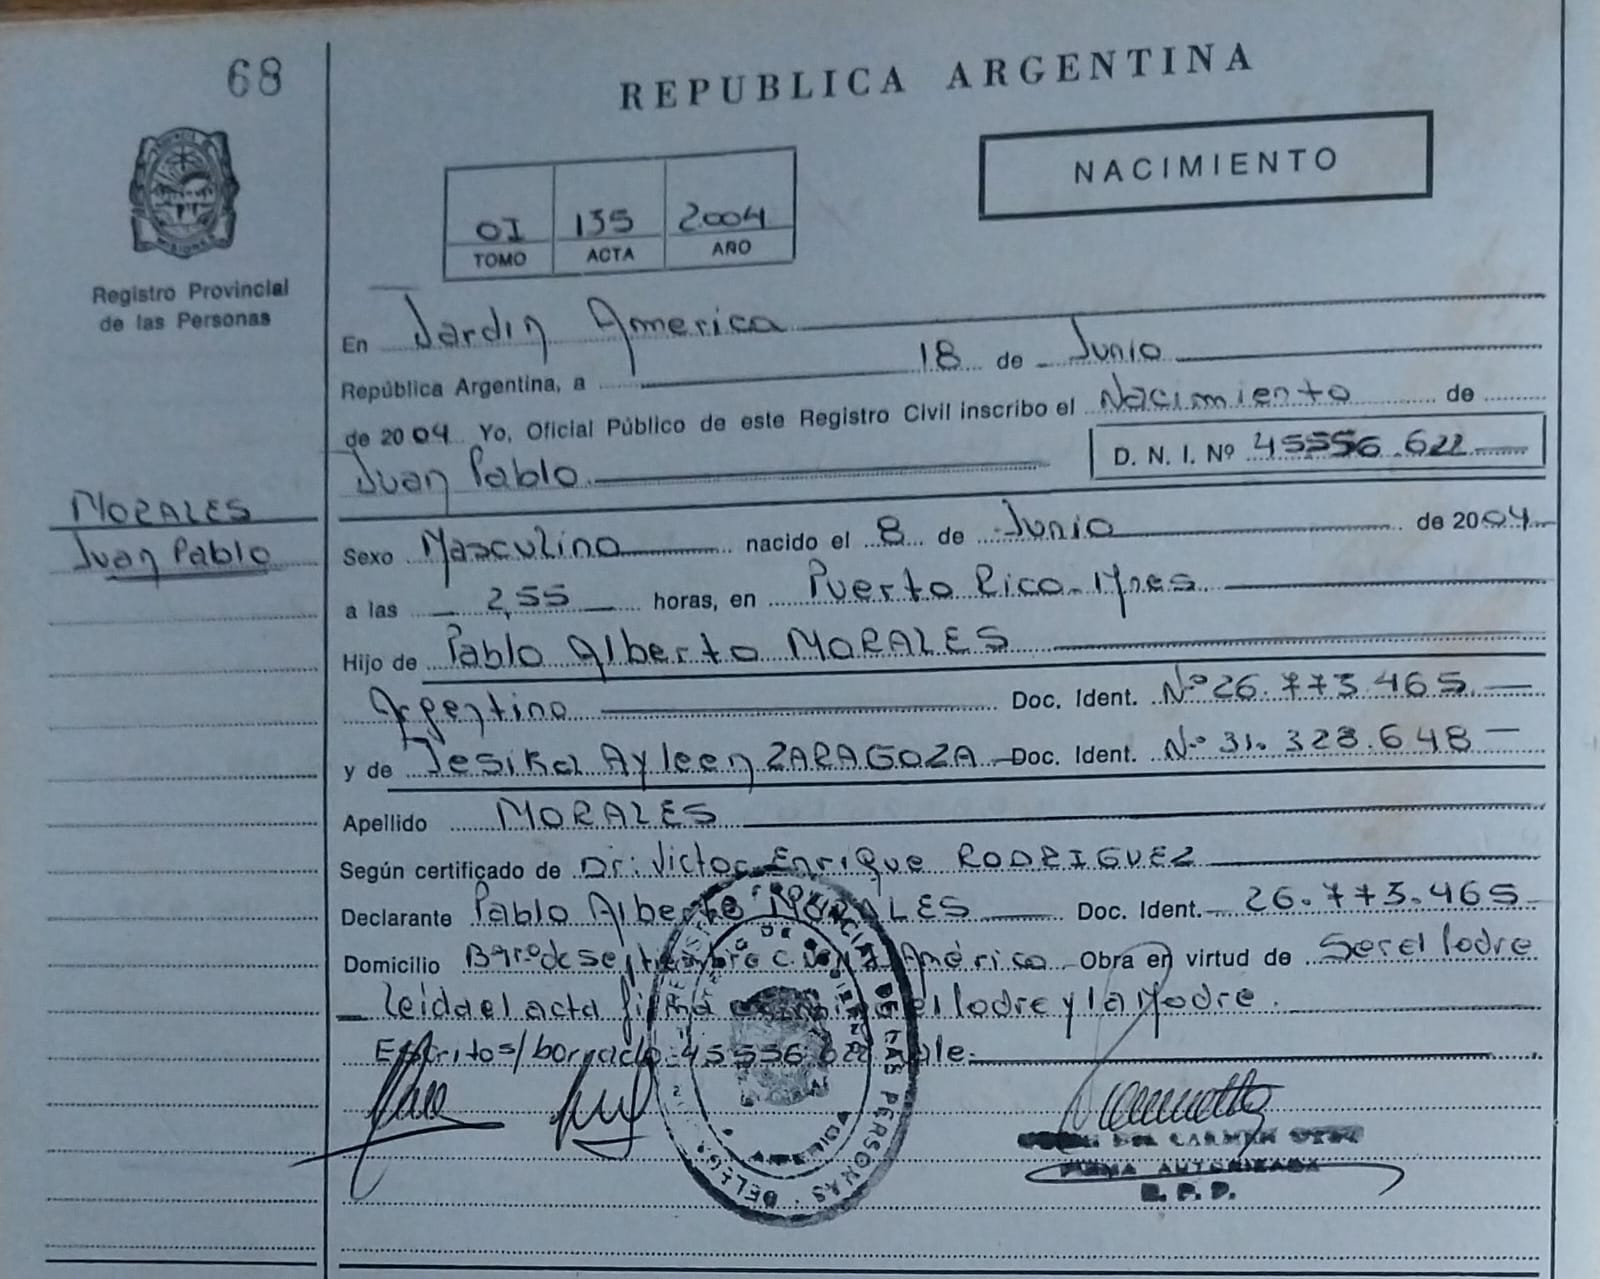 68
REPUBLICA ARGENTINA
NACIMIENTO
MISIONES
OI 135 2004
TOMO ACTA AÑO
Registro Provincial
de las Personas
En Jardin America
República Argentina, a 18 de Junio
de 2004 Yo, Oficial Público de este Registro Civil inscribo el Nacimiento de
Juan Pablo D. N. I. Nº 45556.622
MORALES
Juan Pablo
Sexo Masculino nacido el 8 de Junio de 2004
a las 2,55 horas, en Puerto Rico-Mnes
Hijo de Pablo Alberto MORALES
Argentino Doc. Ident. Nº 26.773.465
y de Jesika Ayleen ZARAGOZA Doc. Ident. Nº 31.328.648
Apellido MORALES
Según certificado de Dr: Victor Enrique RODRIGUEZ
Declarante Pablo Alberto MORALES Doc. Ident. 26.773.465
Domicilio América Obra en virtud de Ser el Padre
leida el acta firma el Padre y la Madre.
45556 622 Vale.
PROVINCIAL DE LAS PERSONAS
DEL CARMEN
FIRMA AUTORIZADA
R. P. P.